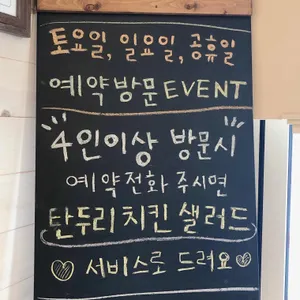 토요일, 일요일, 공휴일
예약방문 EVENT
4인이상 방문시
예약전화 주시면
탄두리치킨 샐러드
서비스로 드려요